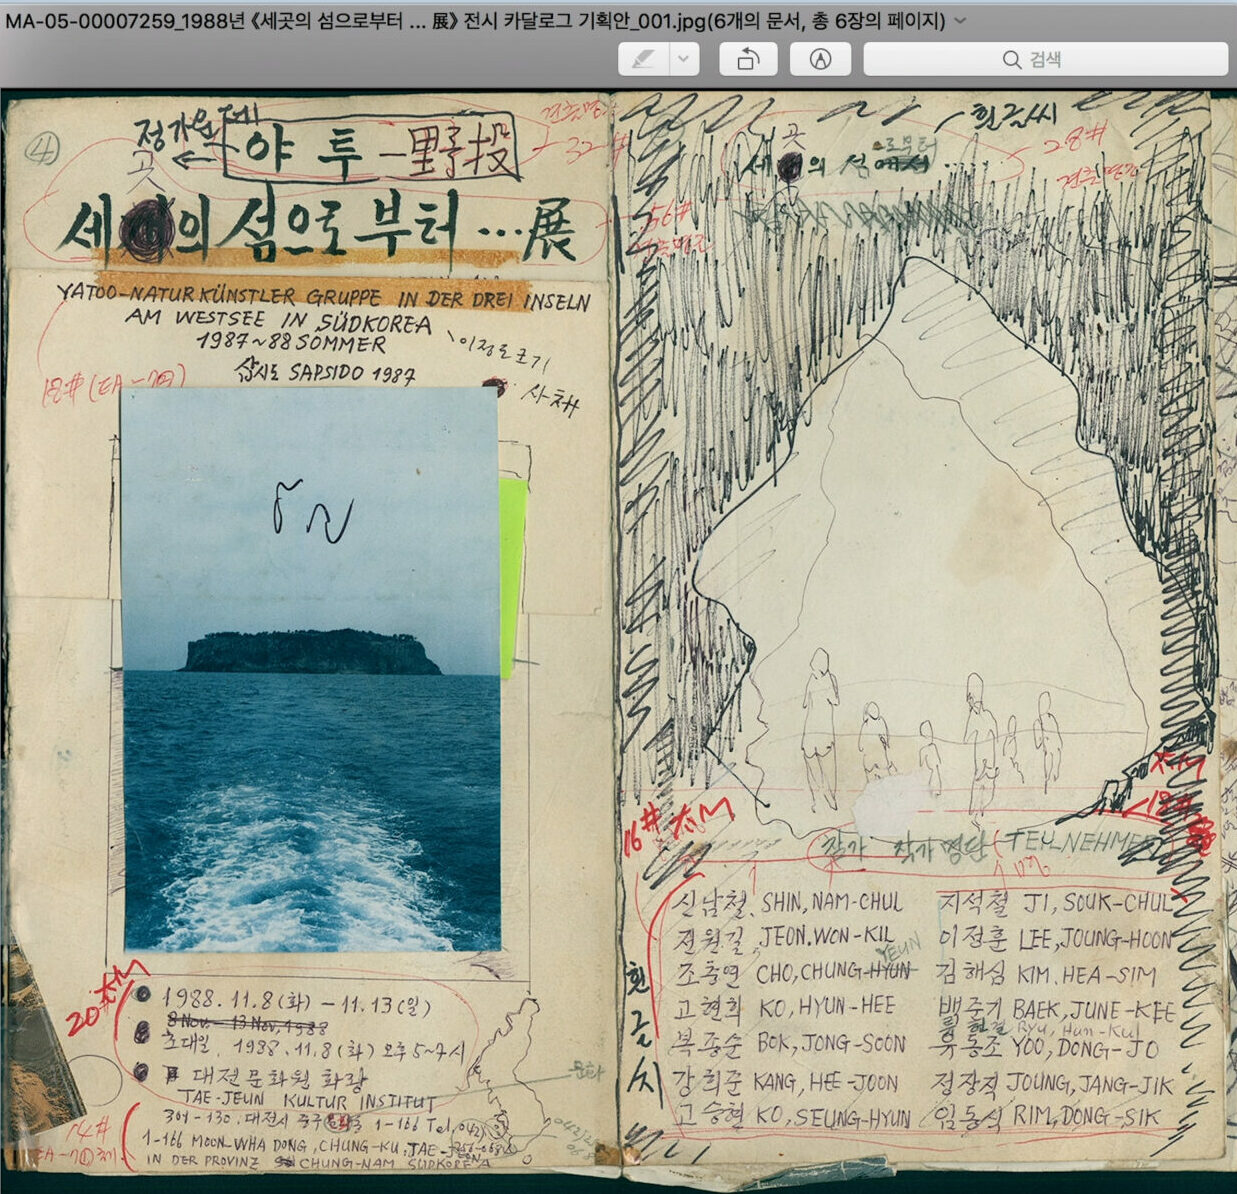 MA-05-00007259_1988년 《세곳의 섬으로부터 ... 展》 전시 카달로그 기획안_001.jpg(6개의 문서, 총 6장의 페이지)
검색
④
곳
야 투 — 野投
32#
세 의 섬으로부터 ... 展
56#
YATOO-NATURKÜNSTLER GRUPPE IN DER DREI INSELN
AM WESTSEE IN SÜDKOREA
1987~88 SOMMER
이정도 크기
삽시도 SAPSIDO 1987
사체
20#
1988.11.8(화) – 11.13(일)
8 Nov – 13 Nov, 1988
초대일. 1988.11.8(화) 오후 5~7시
대전문화원 화랑
TAE-JEUN KULTUR INSTITUT
301-130. 대전시 중구 1-166 Tel,(042)
1-166 MOON-WHA DONG, CHUNG-KU, TAE-
IN DER PROVINZ CHUNG-NAM SÜDKOREA
14#
문화
흰글씨
28#
곳
으로부터
세 의 섬에서 ...
16#
18#
참가 작가 명단 (TEYLNEHMER
흰글씨
신남철. SHIN, NAM-CHUL
전원길, JEON. WON-KIL
YEUN
조충연 CHO, CHUNG-HYUN
고현희 KO, HYUN-HEE
복종순 BOK, JONG-SOON
강희준 KANG, HEE-JOON
고승현 KO, SEUNG-HYUN
지석철 JI, SOUK-CHUL
이정훈 LEE, JOUNG-HOON
김해심 KIM. HEA-SIM
백준기 BAEK, JUNE-KEE
류현걸 Ryu, Hun-Kul
유동조 YOO, DONG-JO
정장직 JOUNG, JANG-JIK
임동식 RIM, DONG-SIK